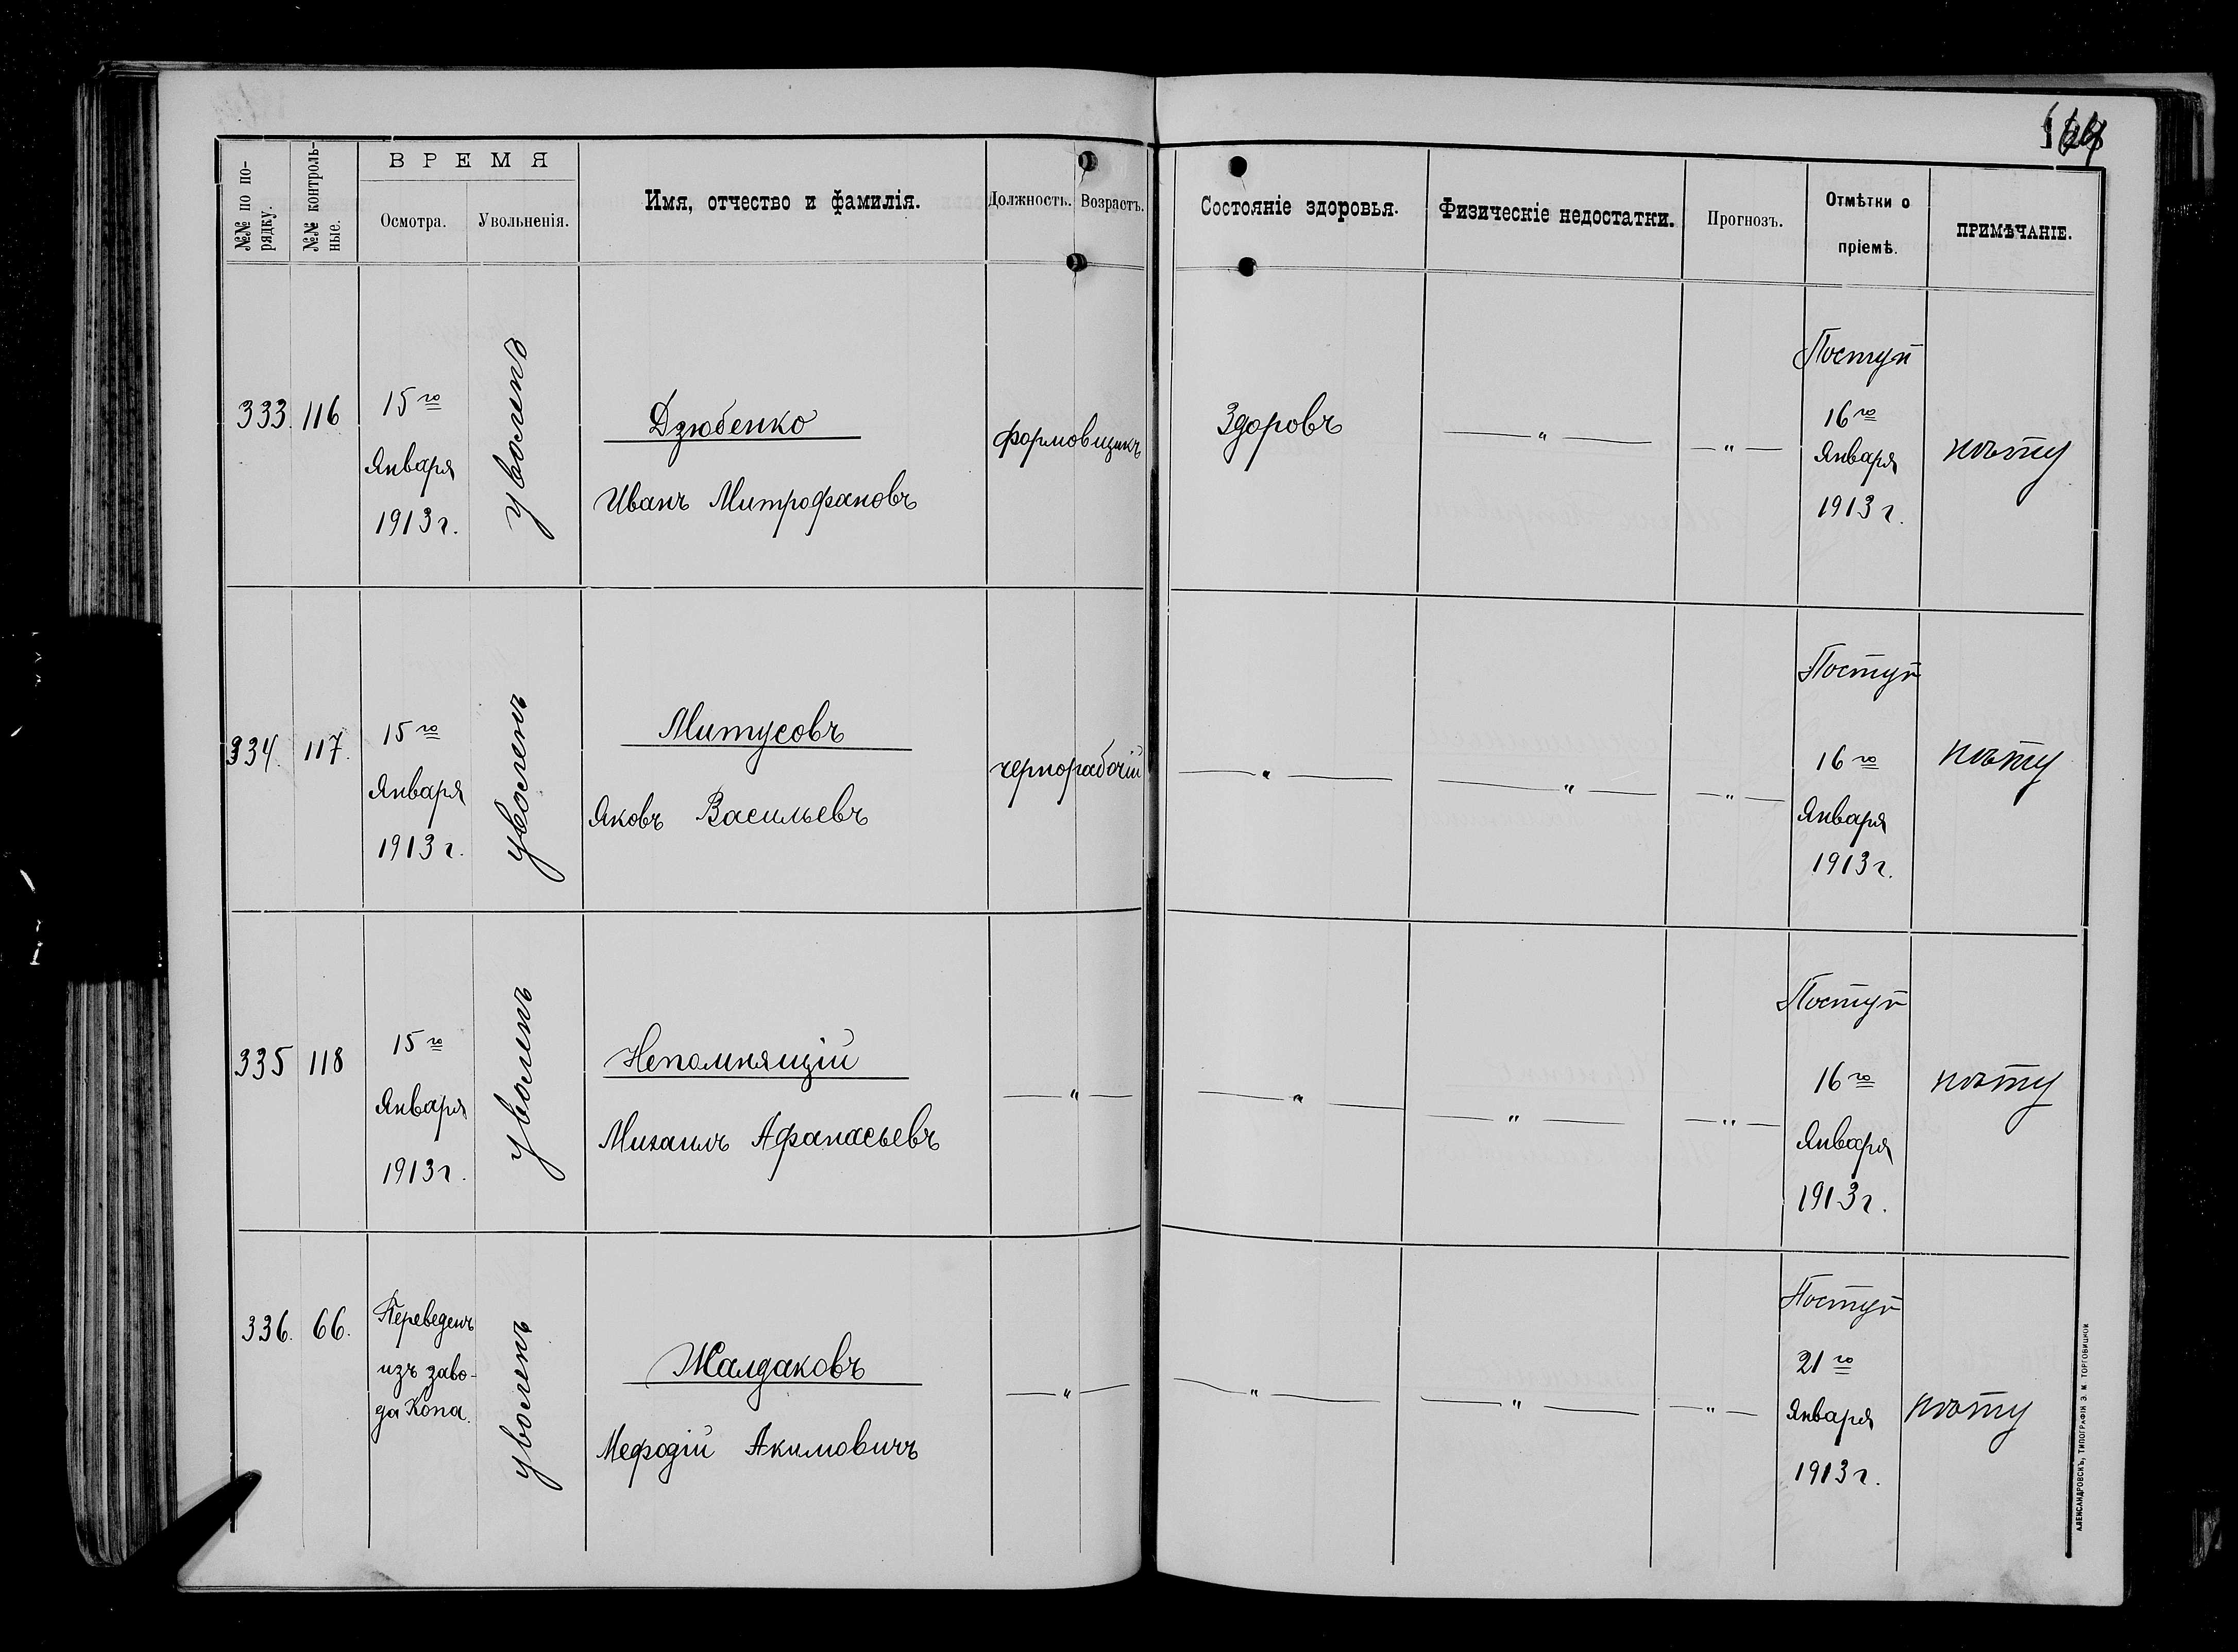 №№ по по-
рядку.
№№ контроль-
ные.
ВРЕМЯ
Осмотра.
Увольненія.
Имя, отчество и фамилія.
Должность.
Возрастъ.
Состояніе здоровья.
Физическіе недостатки.
Прогнозъ.
Отмѣтки о
пріемѣ.
ПРИМѢЧАНІЕ.
333.
116
15го
Января
1913 г.
уволенъ
Дзюбенко
Иванъ Митрофановъ
формовщикъ
Здоровъ
— " —
— " —
Поступ
16го
Января
1913 г.
334.
117.
15го
Января
1913 г.
уволенъ
Митусовъ
Яковъ Васильевъ
чернорабочій
— " —
— " —
— " —
Поступ
16го
Января
1913 г.
335
118
15го
Января
1913 г.
уволенъ
Непомнящій
Михаилъ Афанасьевъ
— " —
— " —
— " —
— " —
Поступ
16го
Января
1913 г.
336.
66.
Переведенъ
изъ заво-
да Копа.
уволенъ
Жалдаковъ
Мефодій Акимовичъ
— " —
— " —
— " —
— " —
Поступ
21го
Января
1913 г.
АЛЕКСАНДРОВСКЪ, ТИПОГРАФІЯ Э. М. ТОРГОВИЦКОЙ